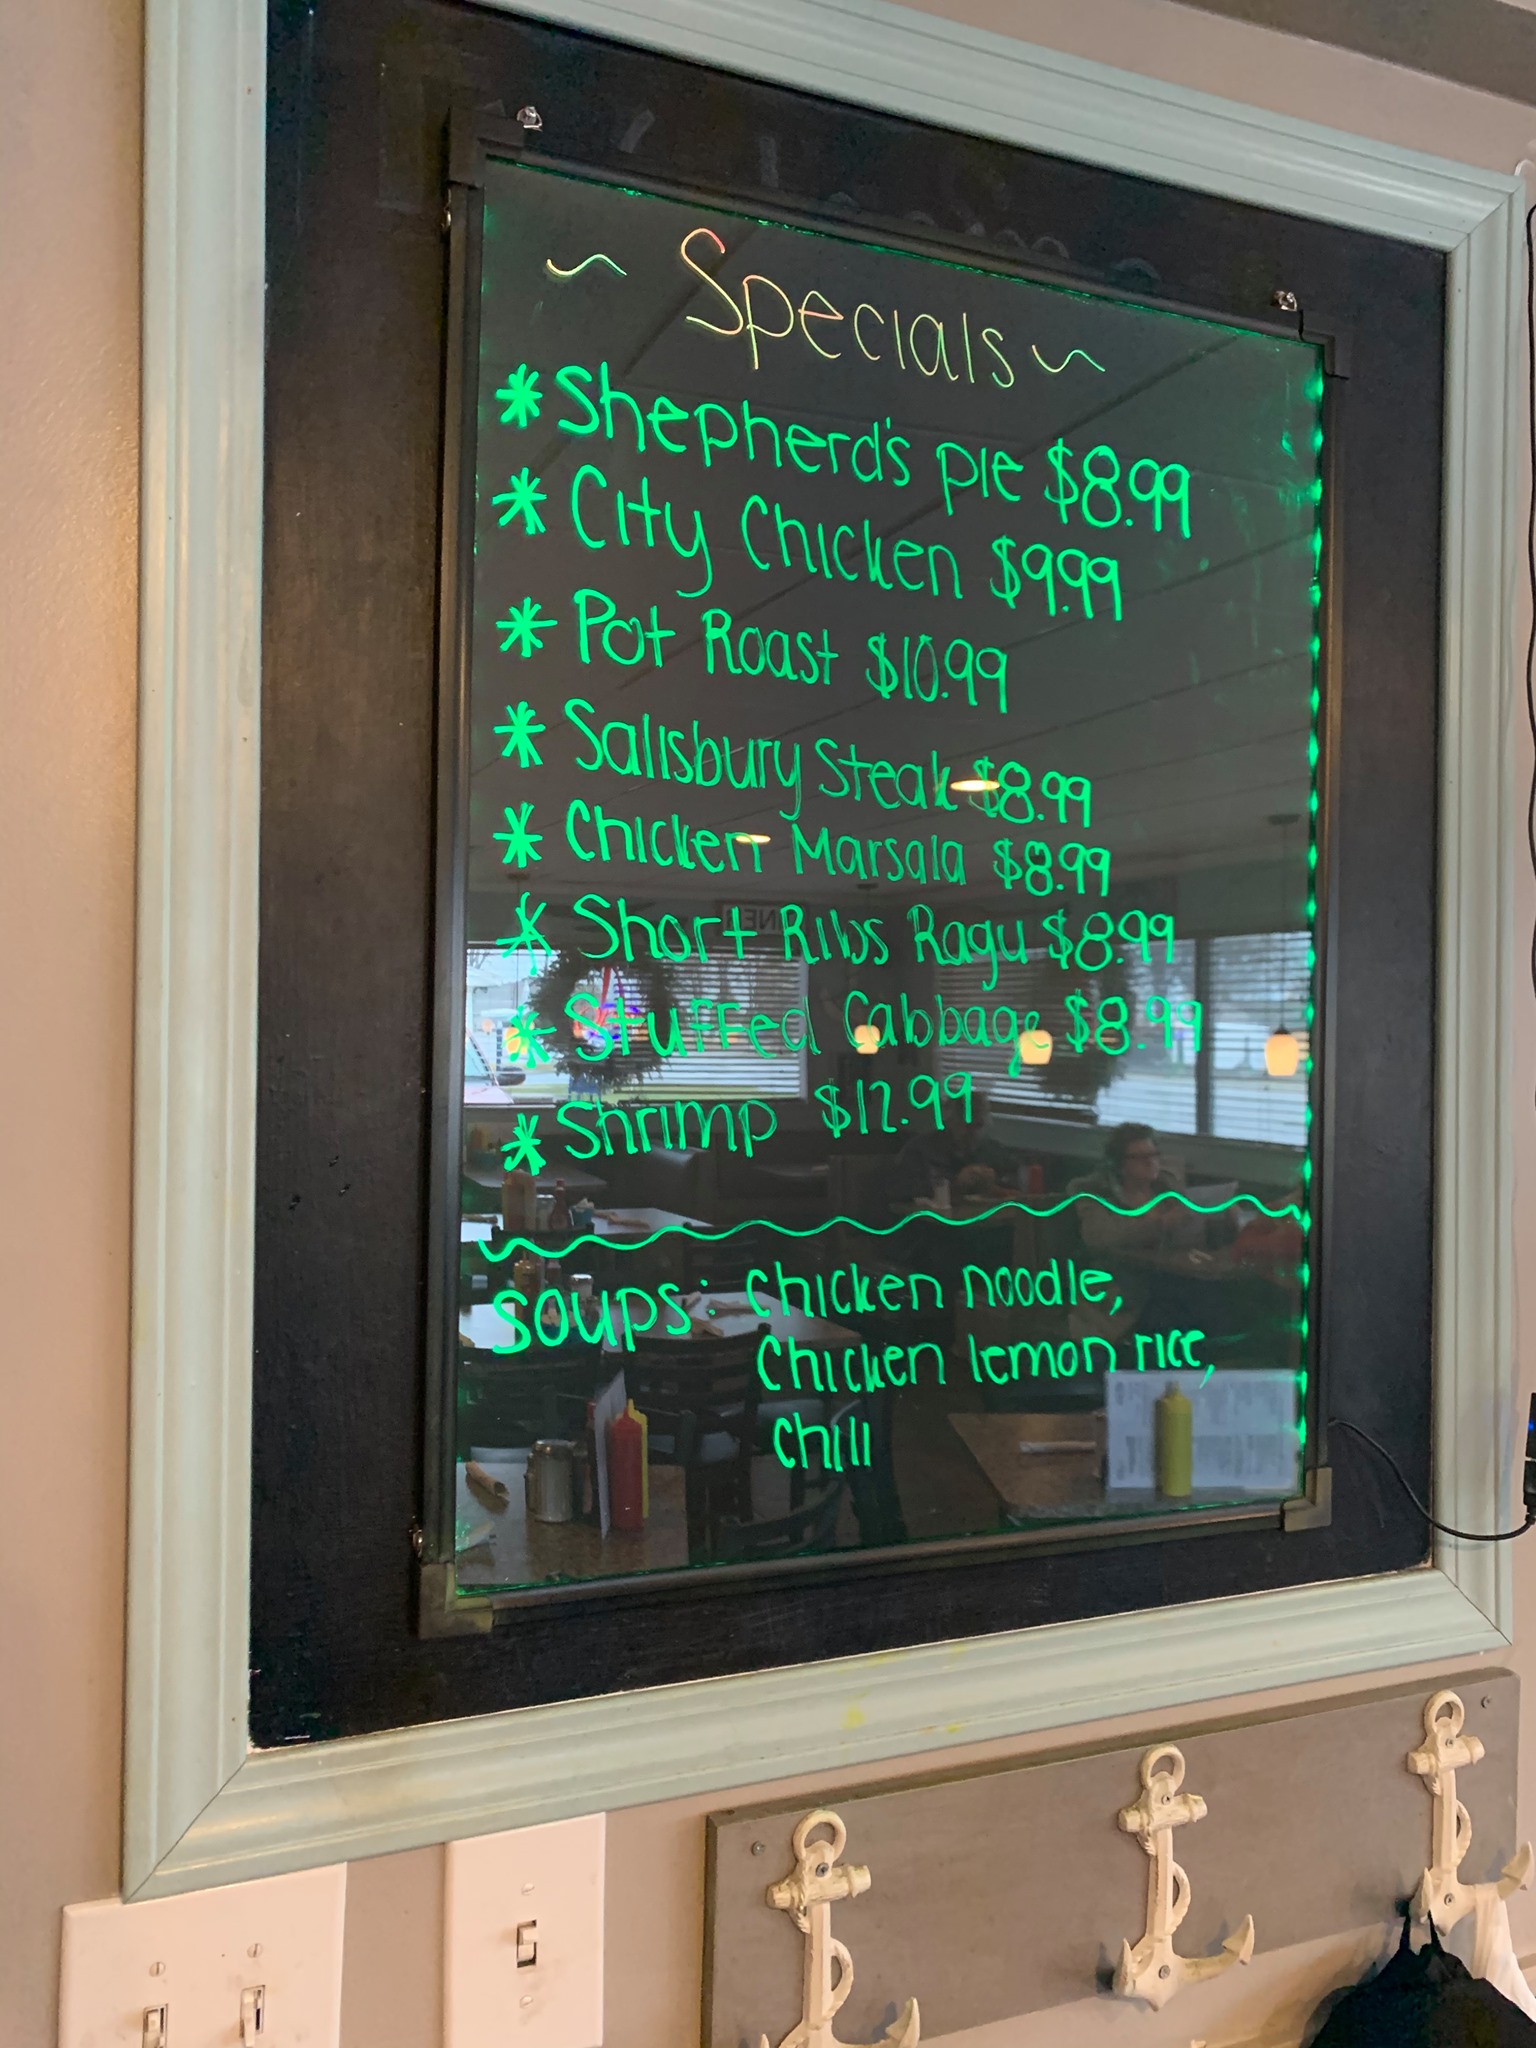 ~ Specials ~
* Shepherd's pie $8.99
* City Chicken $9.99
* Pot Roast $10.99
* Salisbury Steak $8.99
* Chicken Marsala $8.99
* Short Ribs Ragu $8.99
* Stuffed Cabbage $8.99
* Shrimp $12.99
Soups: Chicken noodle,
Chicken lemon rice,
Chili